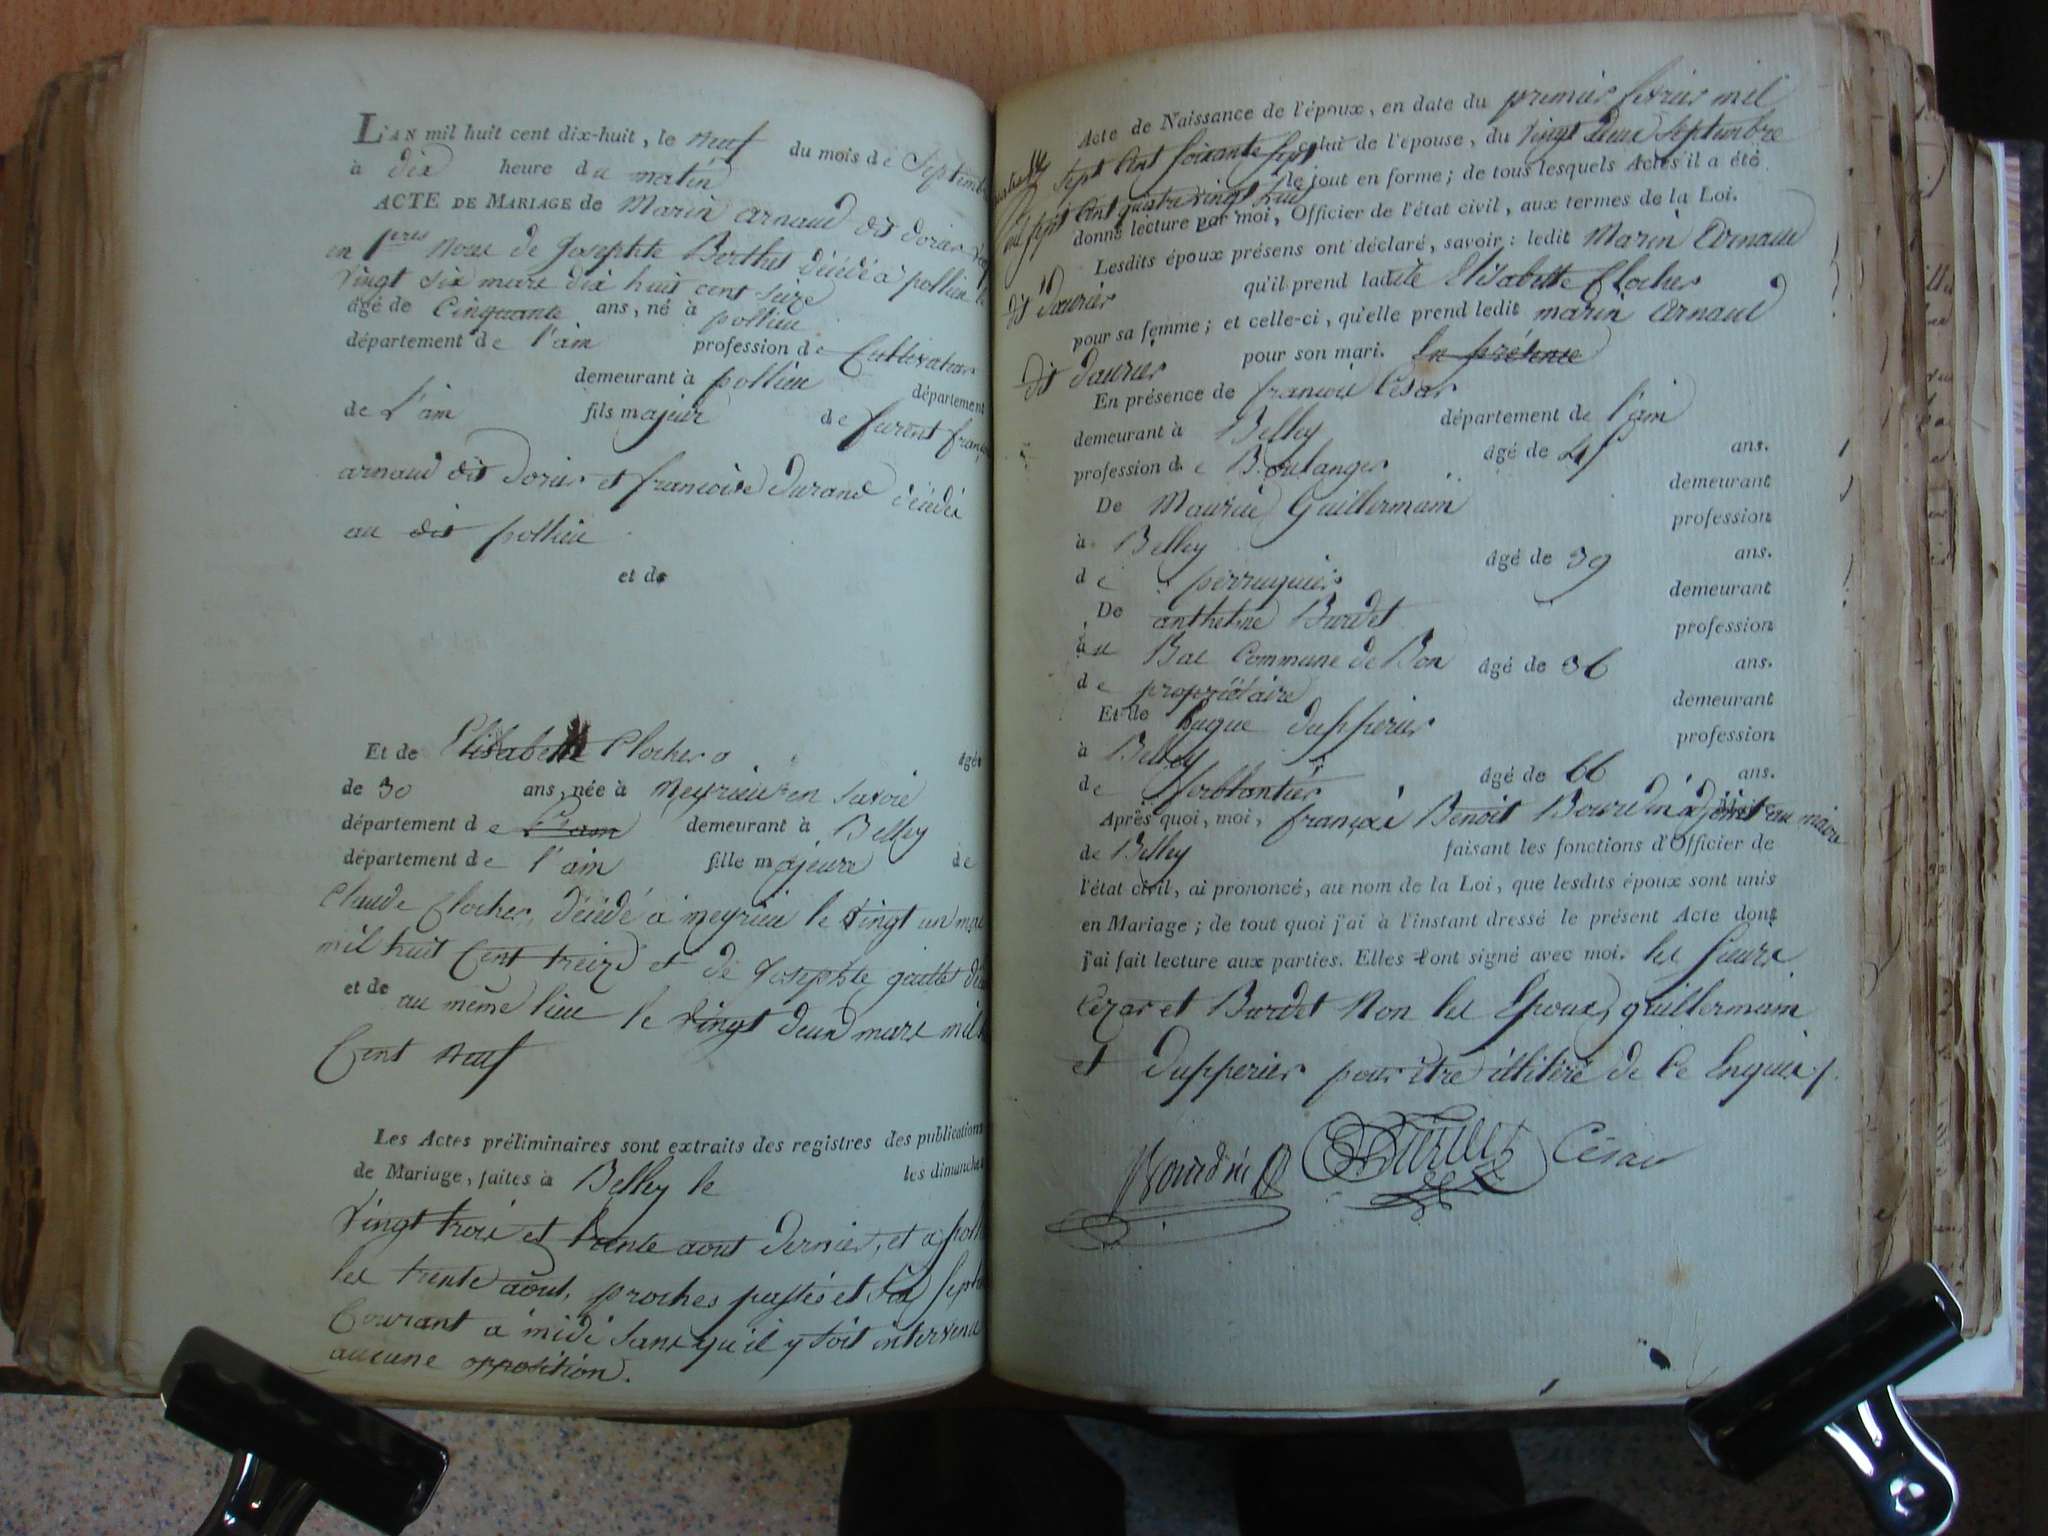 L'AN mil huit cent dix-huit, le neuf du mois de Septembre
à dix heure du matin
ACTE DE MARIAGE de Marin arnaud dit dorier
en pres Noces de Josephte Berthet décédé à pollieu le
vingt six mars dix huit cent seize
âgé de Cinquante ans, né à pollieu
département de l'ain profession de Cultivateur
demeurant à pollieu département
de L'ain fils majeur de furent françois
arnaud dit Dorier et francoise durand décédé
au dit pollieu
et de
Et de Elisabette Clocher âgée
de 30 ans, née à Meyrieu en Savoie
département de L'ain demeurant à Belley
département de l'ain fille majeure de
Claude Clocher, décédé à meyrieu le vingt un
mil huit Cent treize et de Josephte guillet
et de au même lieu le vingt deux mars mil
Cent neuf
Les Actes préliminaires sont extraits des registres des publications
de Mariage, faites à Belley le les dimanches
vingt trois et trente aout dernier, et a
les trente août, proches passés et six
Courant a midi sans qu'il y soit intervenu
aucune opposition.
Acte de Naissance de l'époux, en date du premier fevrier mil
sept Cent soixante sept celui de l'épouse, du vingt deux Septembre
mil sept Cent quatre vingt le tout en forme; de tous lesquels Actes il a été
donné lecture par moi, Officier de l'état civil, aux termes de la Loi.
Lesdits époux présens ont déclaré, savoir : ledit Marin Arnaud
dit Daurier qu'il prend ladite Elisabette Clocher
pour sa femme; et celle-ci, qu'elle prend ledit marin arnaud
dit daurier pour son mari. En présence
En présence de françois César
demeurant à Belley département de l'ain
profession de Boulanger âgé de 45 ans.
De Maurice Guillermain demeurant
à Belley profession
de perruquier âgé de 39 ans.
De anthelme Burdet demeurant
au Bac Commune de Bon profession
de propriétaire âgé de 36 ans.
Et de hugue dupperier demeurant
à Belley profession
de ferblantier âgé de 66 ans.
Après quoi, moi, françois Benoit Bourdin adjoint au maire
de Belley faisant les fonctions d'Officier de
l'état civil, ai prononcé, au nom de la Loi, que lesdits époux sont unis
en Mariage; de tout quoi j'ai à l'instant dressé le présent Acte dont
j'ai fait lecture aux parties. Elles l'ont signé avec moi. les sieurs
Cézar et Burdet Non les Epoux, guillermain
et dupperier pour être illitéré de ce Enquis
Bourdin Burdet César